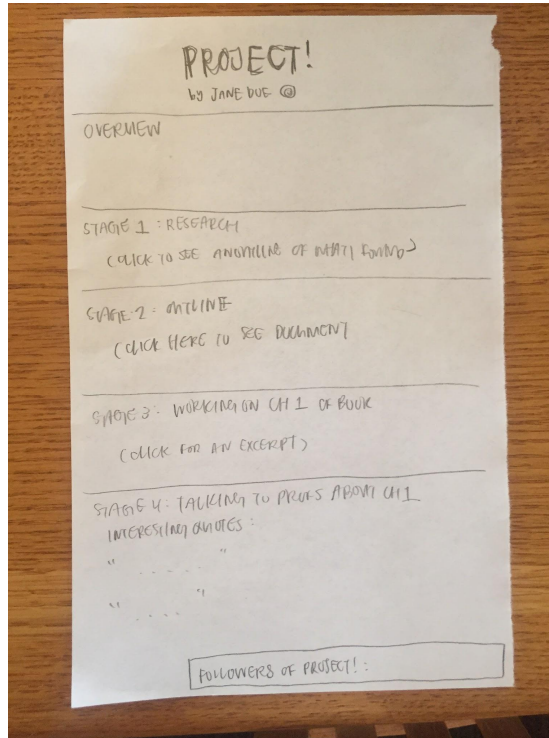 PROJECT!
by JANE DUE @
OVERVIEW
STAGE 1 : RESEARCH
(CLICK TO SEE AN OUTLINE OF WHAT I FOUND)
STAGE 2 : OUTLINE
(CLICK HERE TO SEE DOCUMENT
STAGE 3 : WORKING ON CH 1 OF BOOK
(CLICK FOR AN EXCERPT)
STAGE 4 : TALKING TO PROFS ABOUT CH 1
INTERESTING QUOTES :
" . . . . . "
" . . . . "
FOLLOWERS OF PROJECT! :